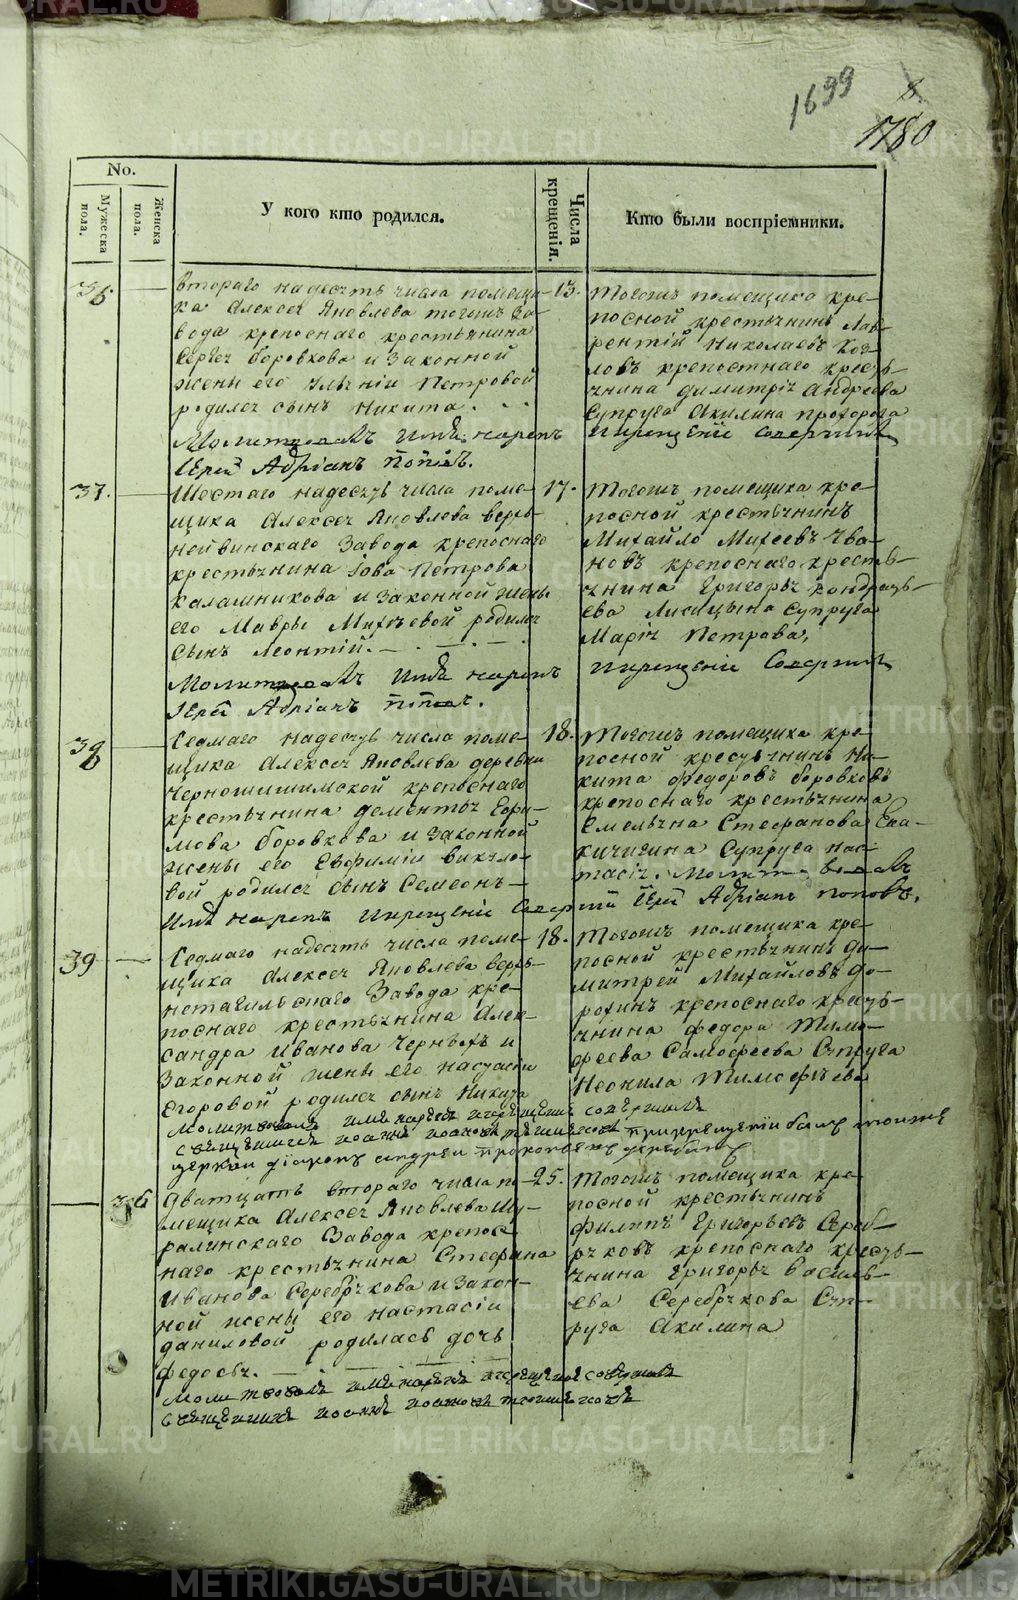 1699
8
1780
No.
Мужеска пола.
Женска пола.
У кого кто родился.
Числа крещенія.
Кто были воспріемники.
36
втораго надесять числа помещи-
ка Алексея Яковлева тогожъ за-
вода крепоснаго крестьянина
Сергея Боровкова и законной
жены его Улѣніи Петровой
родился сынъ Никита.
Молитвовалъ Имя нарекъ
Иерей Адріанъ Поповъ.
13.
Тогожъ помещика кре-
посной крестьянинъ Лав-
рентій Николаевъ Коз-
ловъ крепостнаго кресть-
янина Димитрія Андреева
Супруга Акилина Прохорова
И крещеніе Совершилъ
37.
Шестаго надесять числа поме-
щика Алексея Яковлева верхъ-
нейвинскаго Завода крепоснаго
крестьянина Іова Петрова
Калашникова и законной жены
его Мавры Михѣевой родился
сынъ Леонтій.
Молитвовалъ Имя нарекъ
Іерей Адріанъ Поповъ.
17.
Тогожъ помещика кре-
посной крестьянинъ
Михайло Михеевъ Ива-
новъ крепоснаго кресть-
янина Григорья Кондрать-
ева Лисицына Супруга
Марія Петрова,
И крещеніе Совершилъ
38
Седмаго надесять числа поме-
щика Алексея Яковлева деревни
Черношишимской крепоснаго
крестьянина Дементья Ефи-
мова Боровкова и законной
жены его Евфиміи Викуло-
вой родился сынъ Семеонъ
Имя нарекъ И крещеніе Совершилъ Іерей Адріанъ Поповъ.
18.
Тогожъ помещика кре-
посной крестьянинъ Ни-
кита Федоровъ Боровковъ
крепоснаго крестьянина
Емельяна Стефанова
Супруга Нас-
тасія. Молитвовалъ
39
Седмаго надесять числа поме-
щика Алексея Яковлева верхъ-
нетагильскаго Завода кре-
поснаго крестьянина Алек-
сандра Иванова Черныхъ и
Законной жены его Настасіи
Егоровой родился сынъ Никита
Молитвовалъ имя нарекъ и крещеніе совершилъ
священникъ Іоаннъ Іоанновъ при крещеніи былъ тояже
церкви діаконъ Андрей Прокопьевъ
18.
Тогожъ помещика кре-
посной крестьянинъ Ди-
митрей Михайловъ До-
рохинъ крепоснаго кресть-
янина Федора Тимо-
феева Самофеева Супруга
Неонила Тимофѣева
36
Дватцать втораго числа по-
мещика Алексея Яковлева Шу-
ралинскаго Завода крепос-
наго крестьянина Стефана
Иванова Серебрякова и закон-
ной жены его Настасіи
Даниловой родилась дочь
Федосья.
Молитвовалъ имя нарекъ и крещеніе совершилъ
священникъ Іоаннъ Іоанновъ
25.
Тогожъ помещика кре-
посной крестьянинъ
Филипъ Григорьевъ Сереб-
ряковъ крепоснаго кресть-
янина Григорья Василь-
ева Серебрякова Суп-
руга Акилина
METRIKI.GASO-URAL.RU